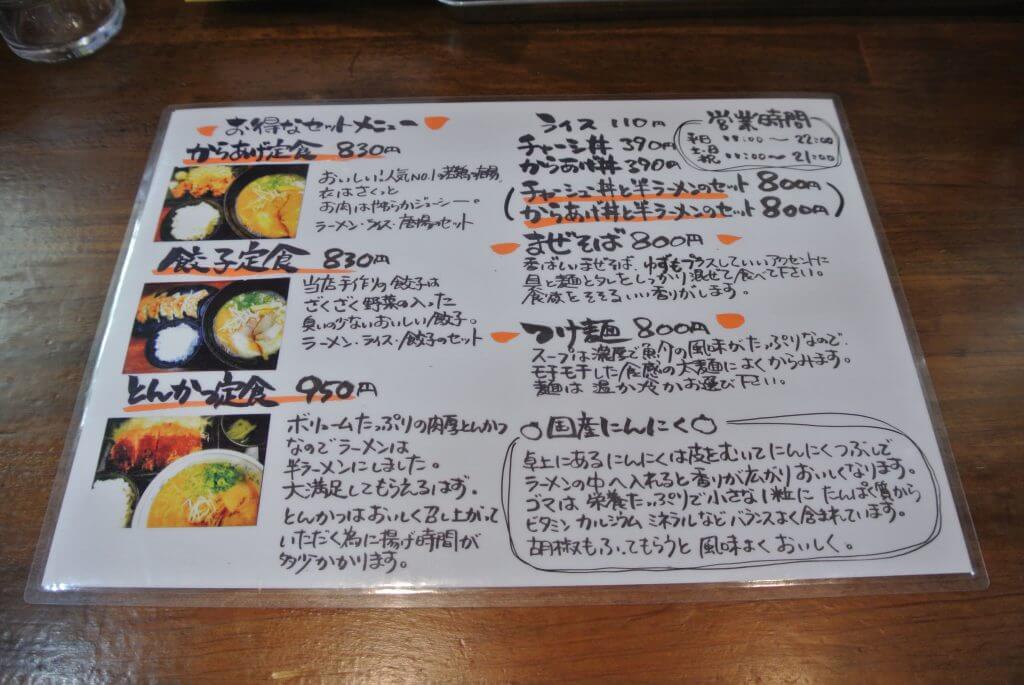 お得なセットメニュー
からあげ定食 830円
おいしい!人気NO.1の若鶏の唐揚。
衣はさくっと
お肉はやわらかジューシー。
ラーメン・ライス・唐揚のセット
餃子定食 830円
当店手作りの餃子は
ざくざく野菜の入った
臭いの少ないおいしい餃子。
ラーメン・ライス・餃子のセット
とんかつ定食 950円
ボリュームたっぷりの肉厚とんかつ
なのでラーメンは
半ラーメンにしました。
大満足してもらえるはず。
とんかつはおいしく召し上がって
いただく為に揚げ時間が
多少かかります。
ライス 110円
チャーシ丼 390円
からあげ丼 390円
(チャーシュ丼と半ラーメンのセット 800円
からあげ丼と半ラーメンのセット 800円)
営業時間
平日 11:00〜22:00
土・日・祝 11:00〜21:00
まぜそば 800円
香ばしいまぜそば、ゆずもプラスしていいアクセントに
具と麺とタレをしっかり混ぜて食べて下さい。
食欲をそそるいい香りがします。
つけ麺 800円
スープは濃厚で魚介の風味がたっぷりなので、
モチモチした食感の太麺によくからみます。
麺は温か冷かお選び下さい。
国産にんにく
卓上にあるにんにくは皮をむいてにんにくつぶしで
ラーメンの中へ入れると香りが広がりおいしくなります。
ゴマは栄養たっぷりで小さな1粒にたんぱく質から
ビタミン カルシウム ミネラルなどバランスよく含まれています。
胡椒もふってもらうと風味よくおいしく。